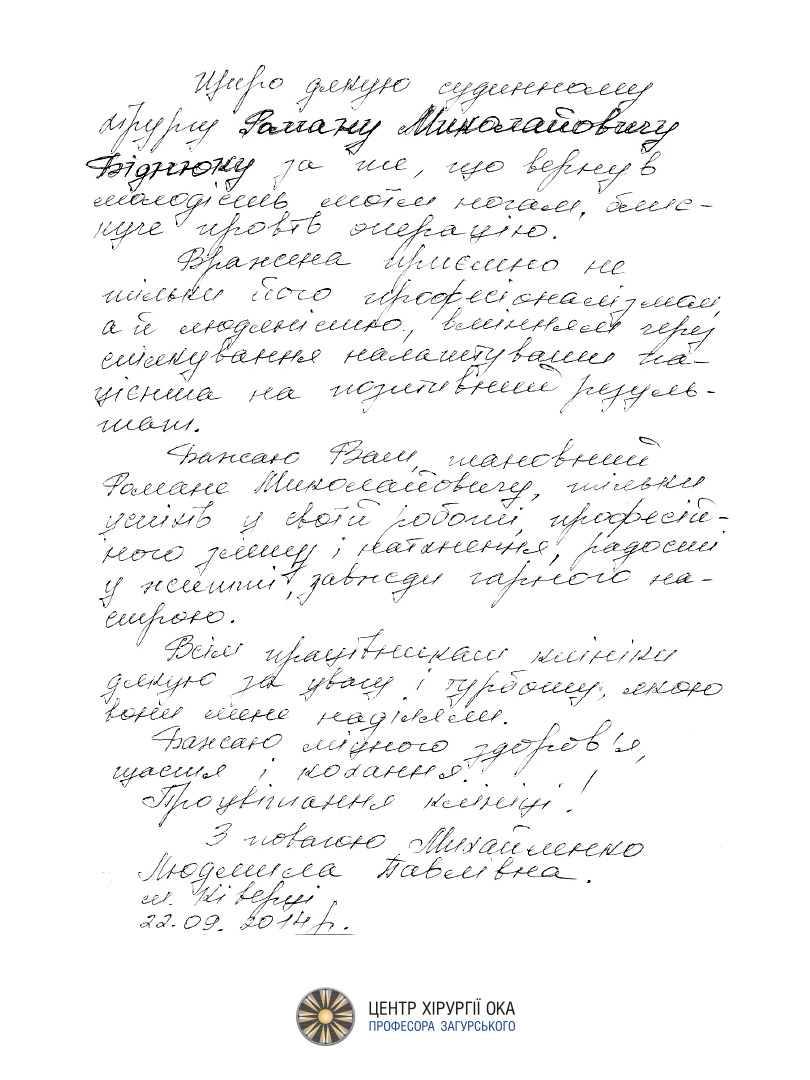 Щиро дякую судинному
хірургу Роману Миколайовичу
Біднюку за те, що вернув
молодість моїм ногам, блис-
куче провів операцію.
Вражена приємно не
тільки його професіоналізмом,
а й людяністю, вмінням через
спілкування налаштувати па-
цієнта на позитивний резуль-
тат.
Бажаю Вам, шановний
Романе Миколайовичу, тільки
успіхів у своїй роботі, професій-
ного злету і натхнення, радості
у житті, завжди гарного на-
строю.
Всім працівникам клініки
дякую за увагу і турботу, якою
вони мене наділяли.
Бажаю міцного здоров'я,
щастя і кохання.
Процвітання клініці!
З повагою Михайленко
Людмила Павлівна.
м. Ківерці
22.09.2014 р.
ЦЕНТР ХІРУРГІЇ ОКА
ПРОФЕСОРА ЗАГУРСЬКОГО